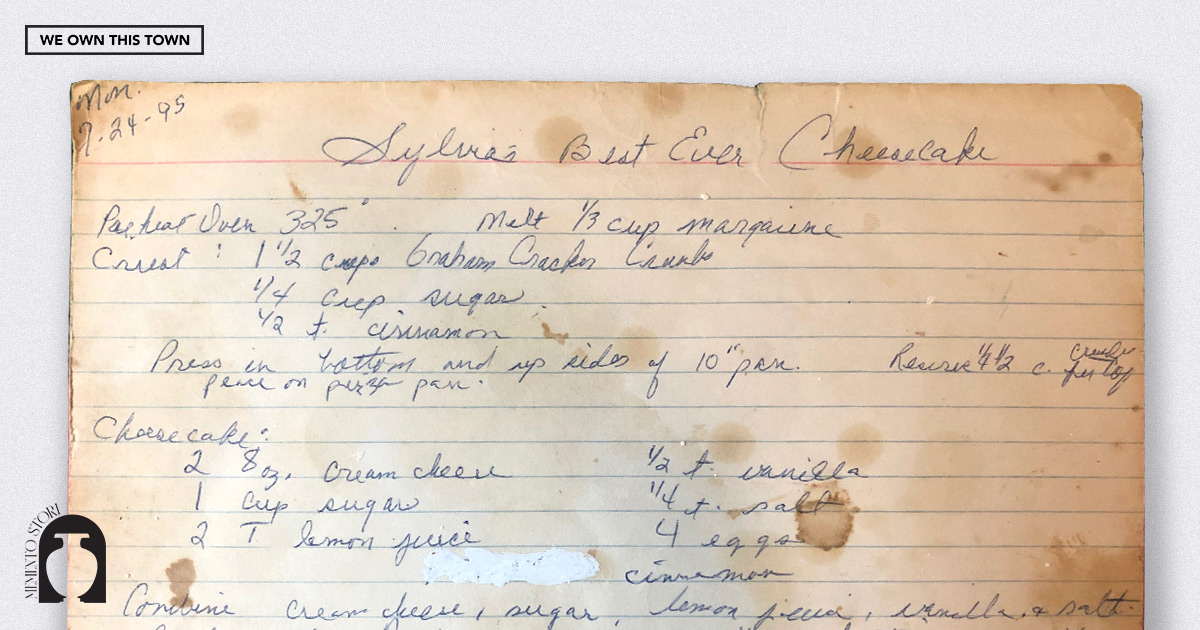 WE OWN THIS TOWN
Mon.
7-24-95
Sylvia's Best Ever Cheesecake
Preheat Oven 325° . Melt 1/3 cup margarine
Crust : 1 1/2 cups Graham Cracker Crumbs
1/4 cup sugar
1/2 t. cinnamon
Press in bottom and up sides of 10" pan. Reserve c. crumbs for top
on pizza pan.
Cheesecake:
2 8 oz. cream cheese 1/2 t. vanilla
1 cup sugar 1/4 t. salt
2 T lemon juice 4 eggs
cinnamon
Combine cream cheese, sugar, lemon juice, vanilla, & salt.
MEMENTO STORI